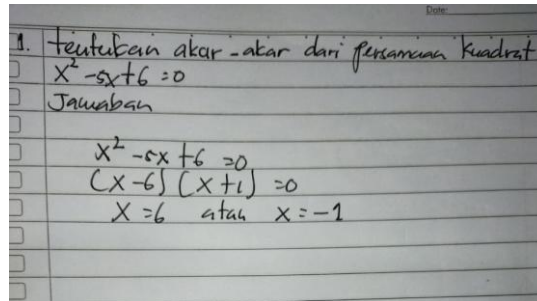 Date:
1. tentukan akar-akar dari persamaan kuadrat
x² -5x+6 =0
Jawaban
x² -5x +6 =0
(x -6) (x +1) =0
x =6 atau x = -1